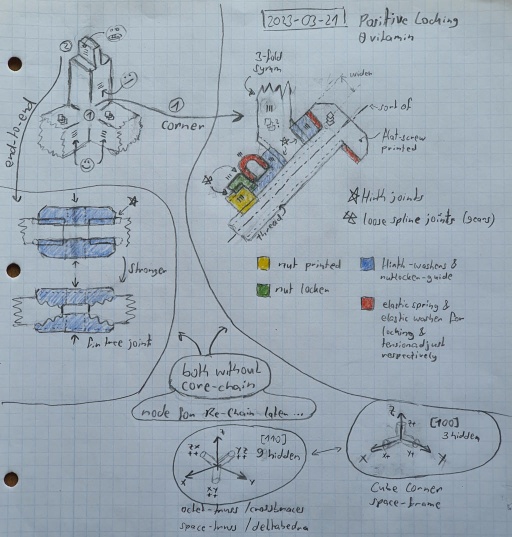 2023-03-21
Positive Locking
0 vitamin
2
3-fold
symm
widen
sort of
1
1
corner
end-to-end
flat-screw
printed
thread
Hirth joints
loose spline joints (gears)
stronger
nut printed
nut locker
Hirth-washers &
nutlocker-guide
elastic spring &
elastic washer for
locking &
tensionadjust
respectively
fir tree joint
both without
core-chain
mode for Re-Chain later ...
[110]
9 hidden
zx
++
yz
++
xy
++
z
x
y
[100]
3 hidden
z
z+
x+
y+
x
y
octet-truss / crossbraces
space-truss / deltahedra
Cube Corner
space-frame